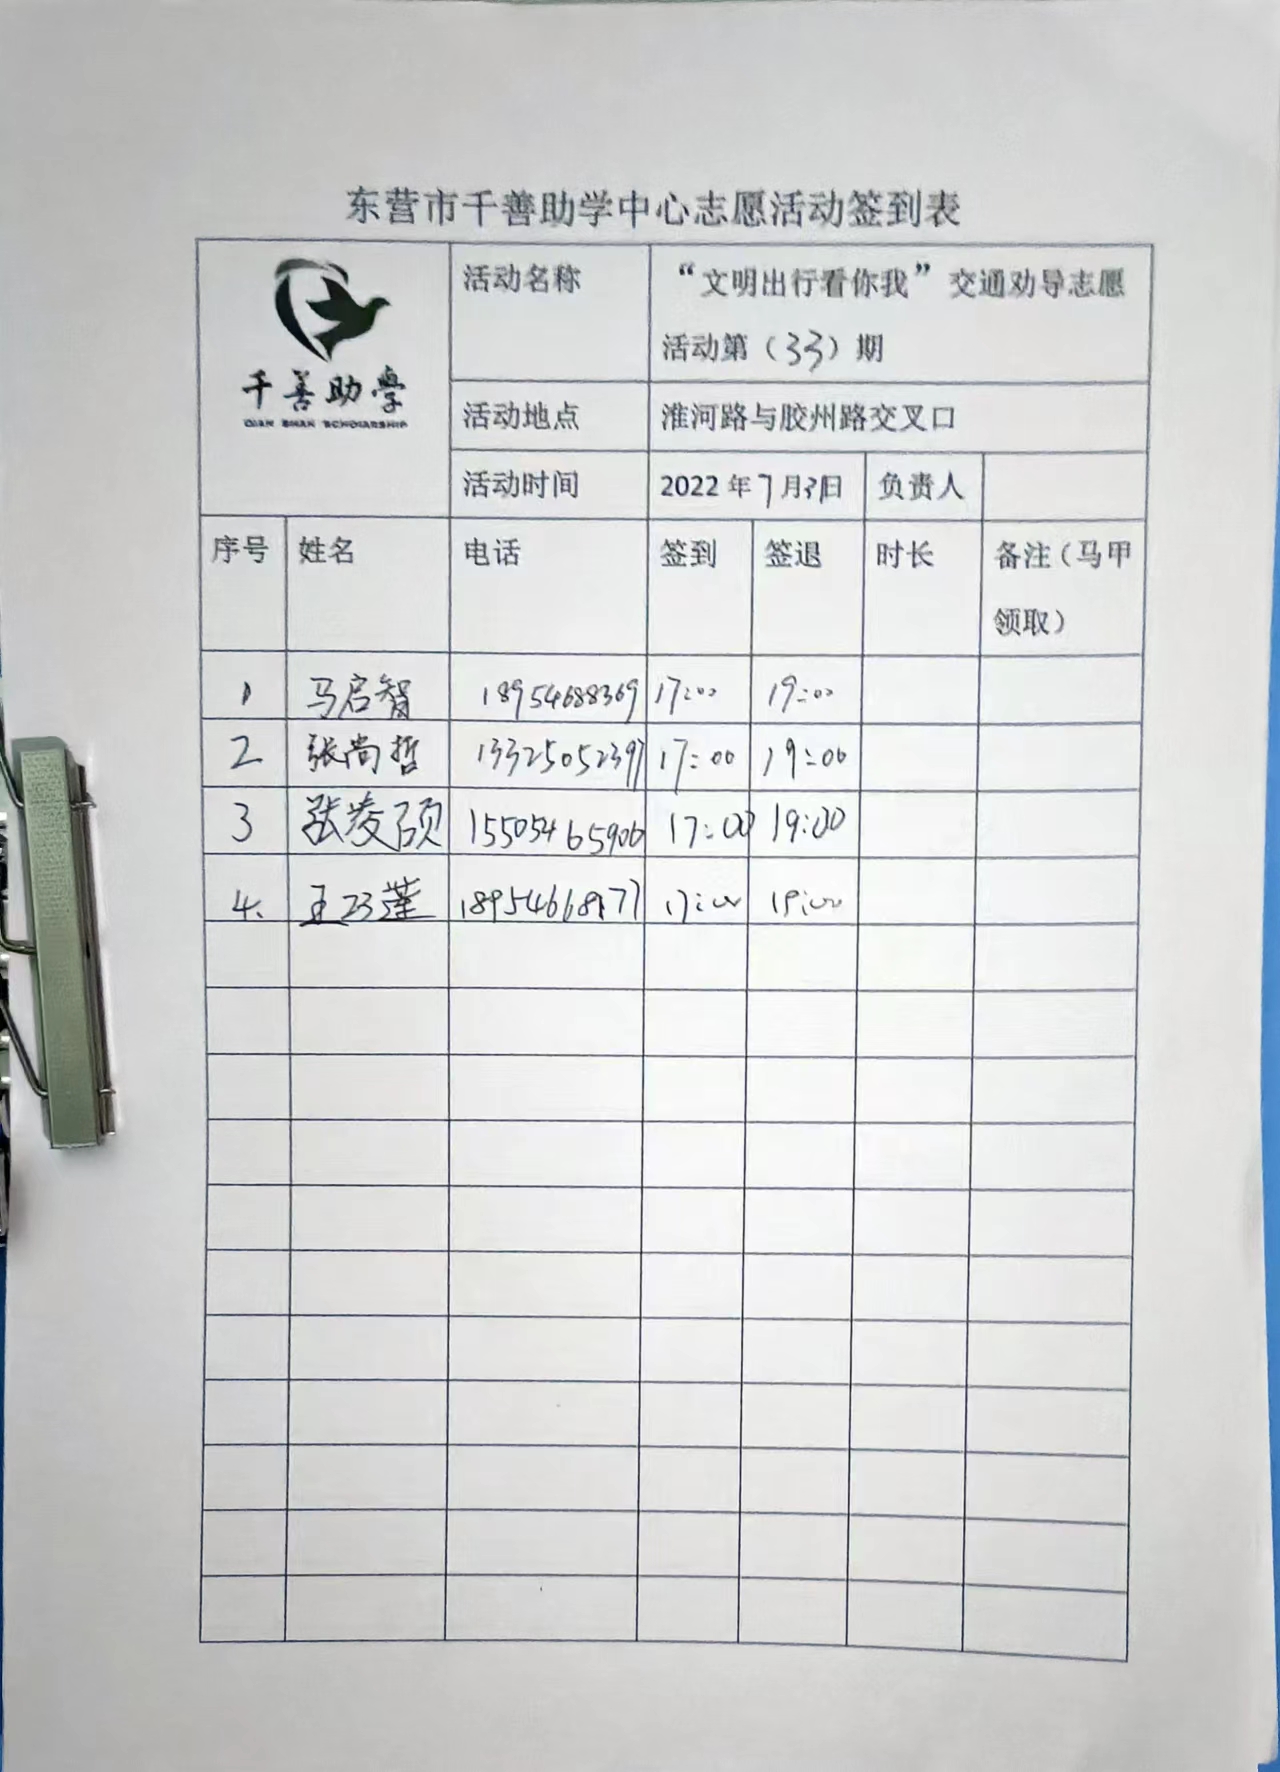 东营市千善助学中心志愿活动签到表
千善助学
QIAN SHAN SCHOLARSHIP
活动名称 “文明出行看你我”交通劝导志愿
活动第（33）期
活动地点 淮河路与胶州路交叉口
活动时间 2022年7月31日 负责人
序号 姓名 电话 签到 签退 时长 备注（马甲
领取）
1 马启智 18954688369 17:00 19:00
2 张尚哲 13325052397 17:00 19:00
3 张凌硕 15505465906 17:00 19:00
4. 王巧莲 17:00 19:00